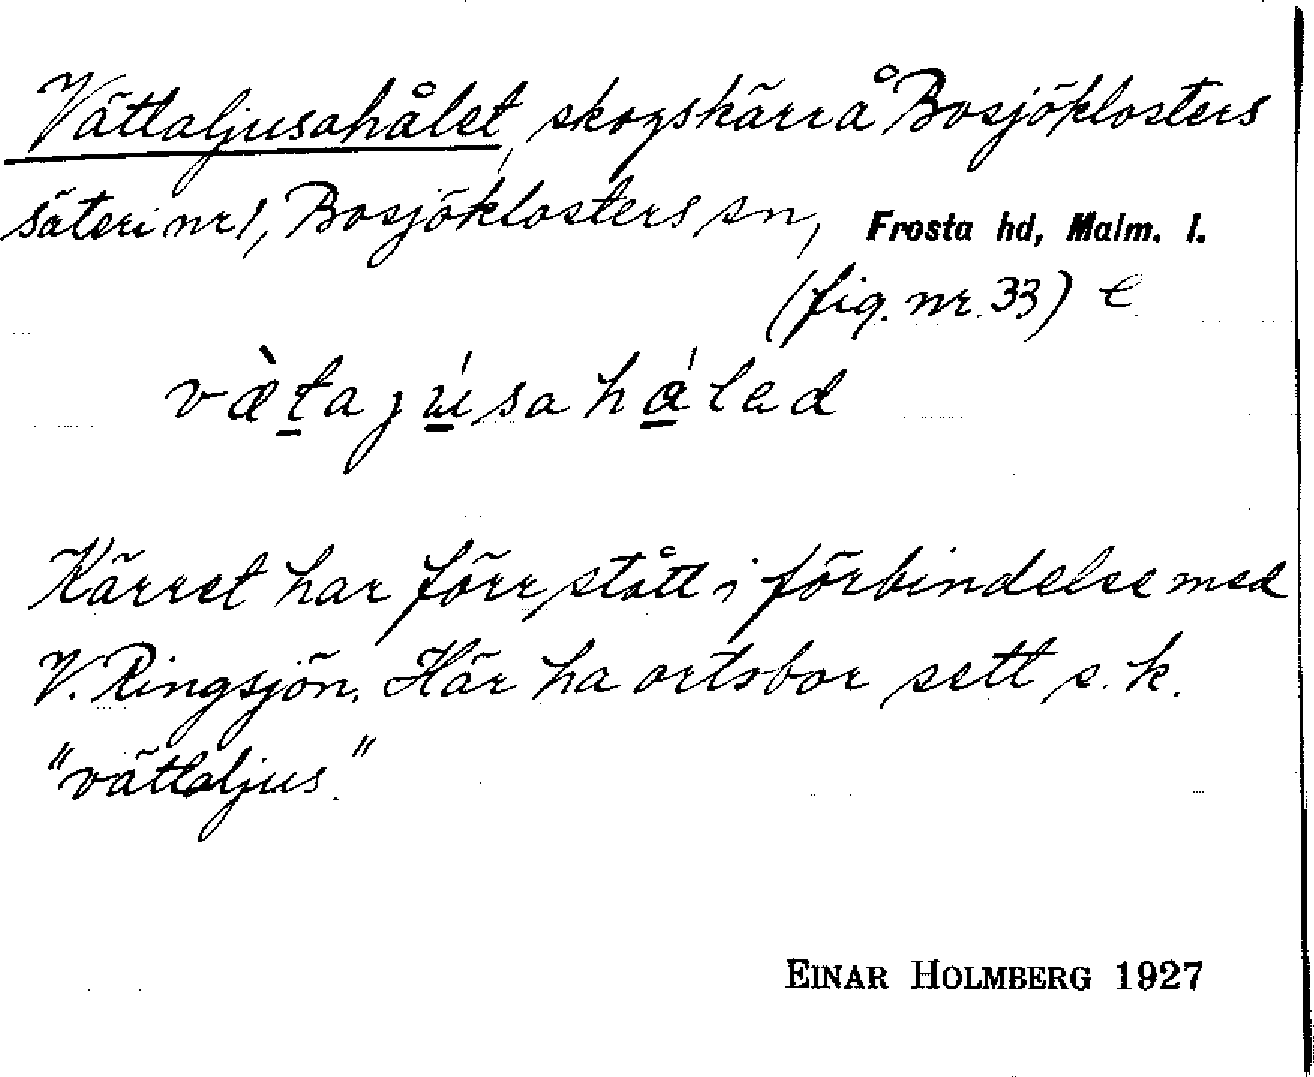 Vättaljusahålet, skogskärr å Bosjöklosters
säteri nr 1, Bosjöklosters sn, Frosta hd, Malm. l.
(fig. nr. 33) e
væ̀ṯajúsahálad
Kärret har förr stått i förbindelse med
V. Ringsjön. Här ha ortsbor sett s.k.
"vättaljus."
EINAR HOLMBERG 1927